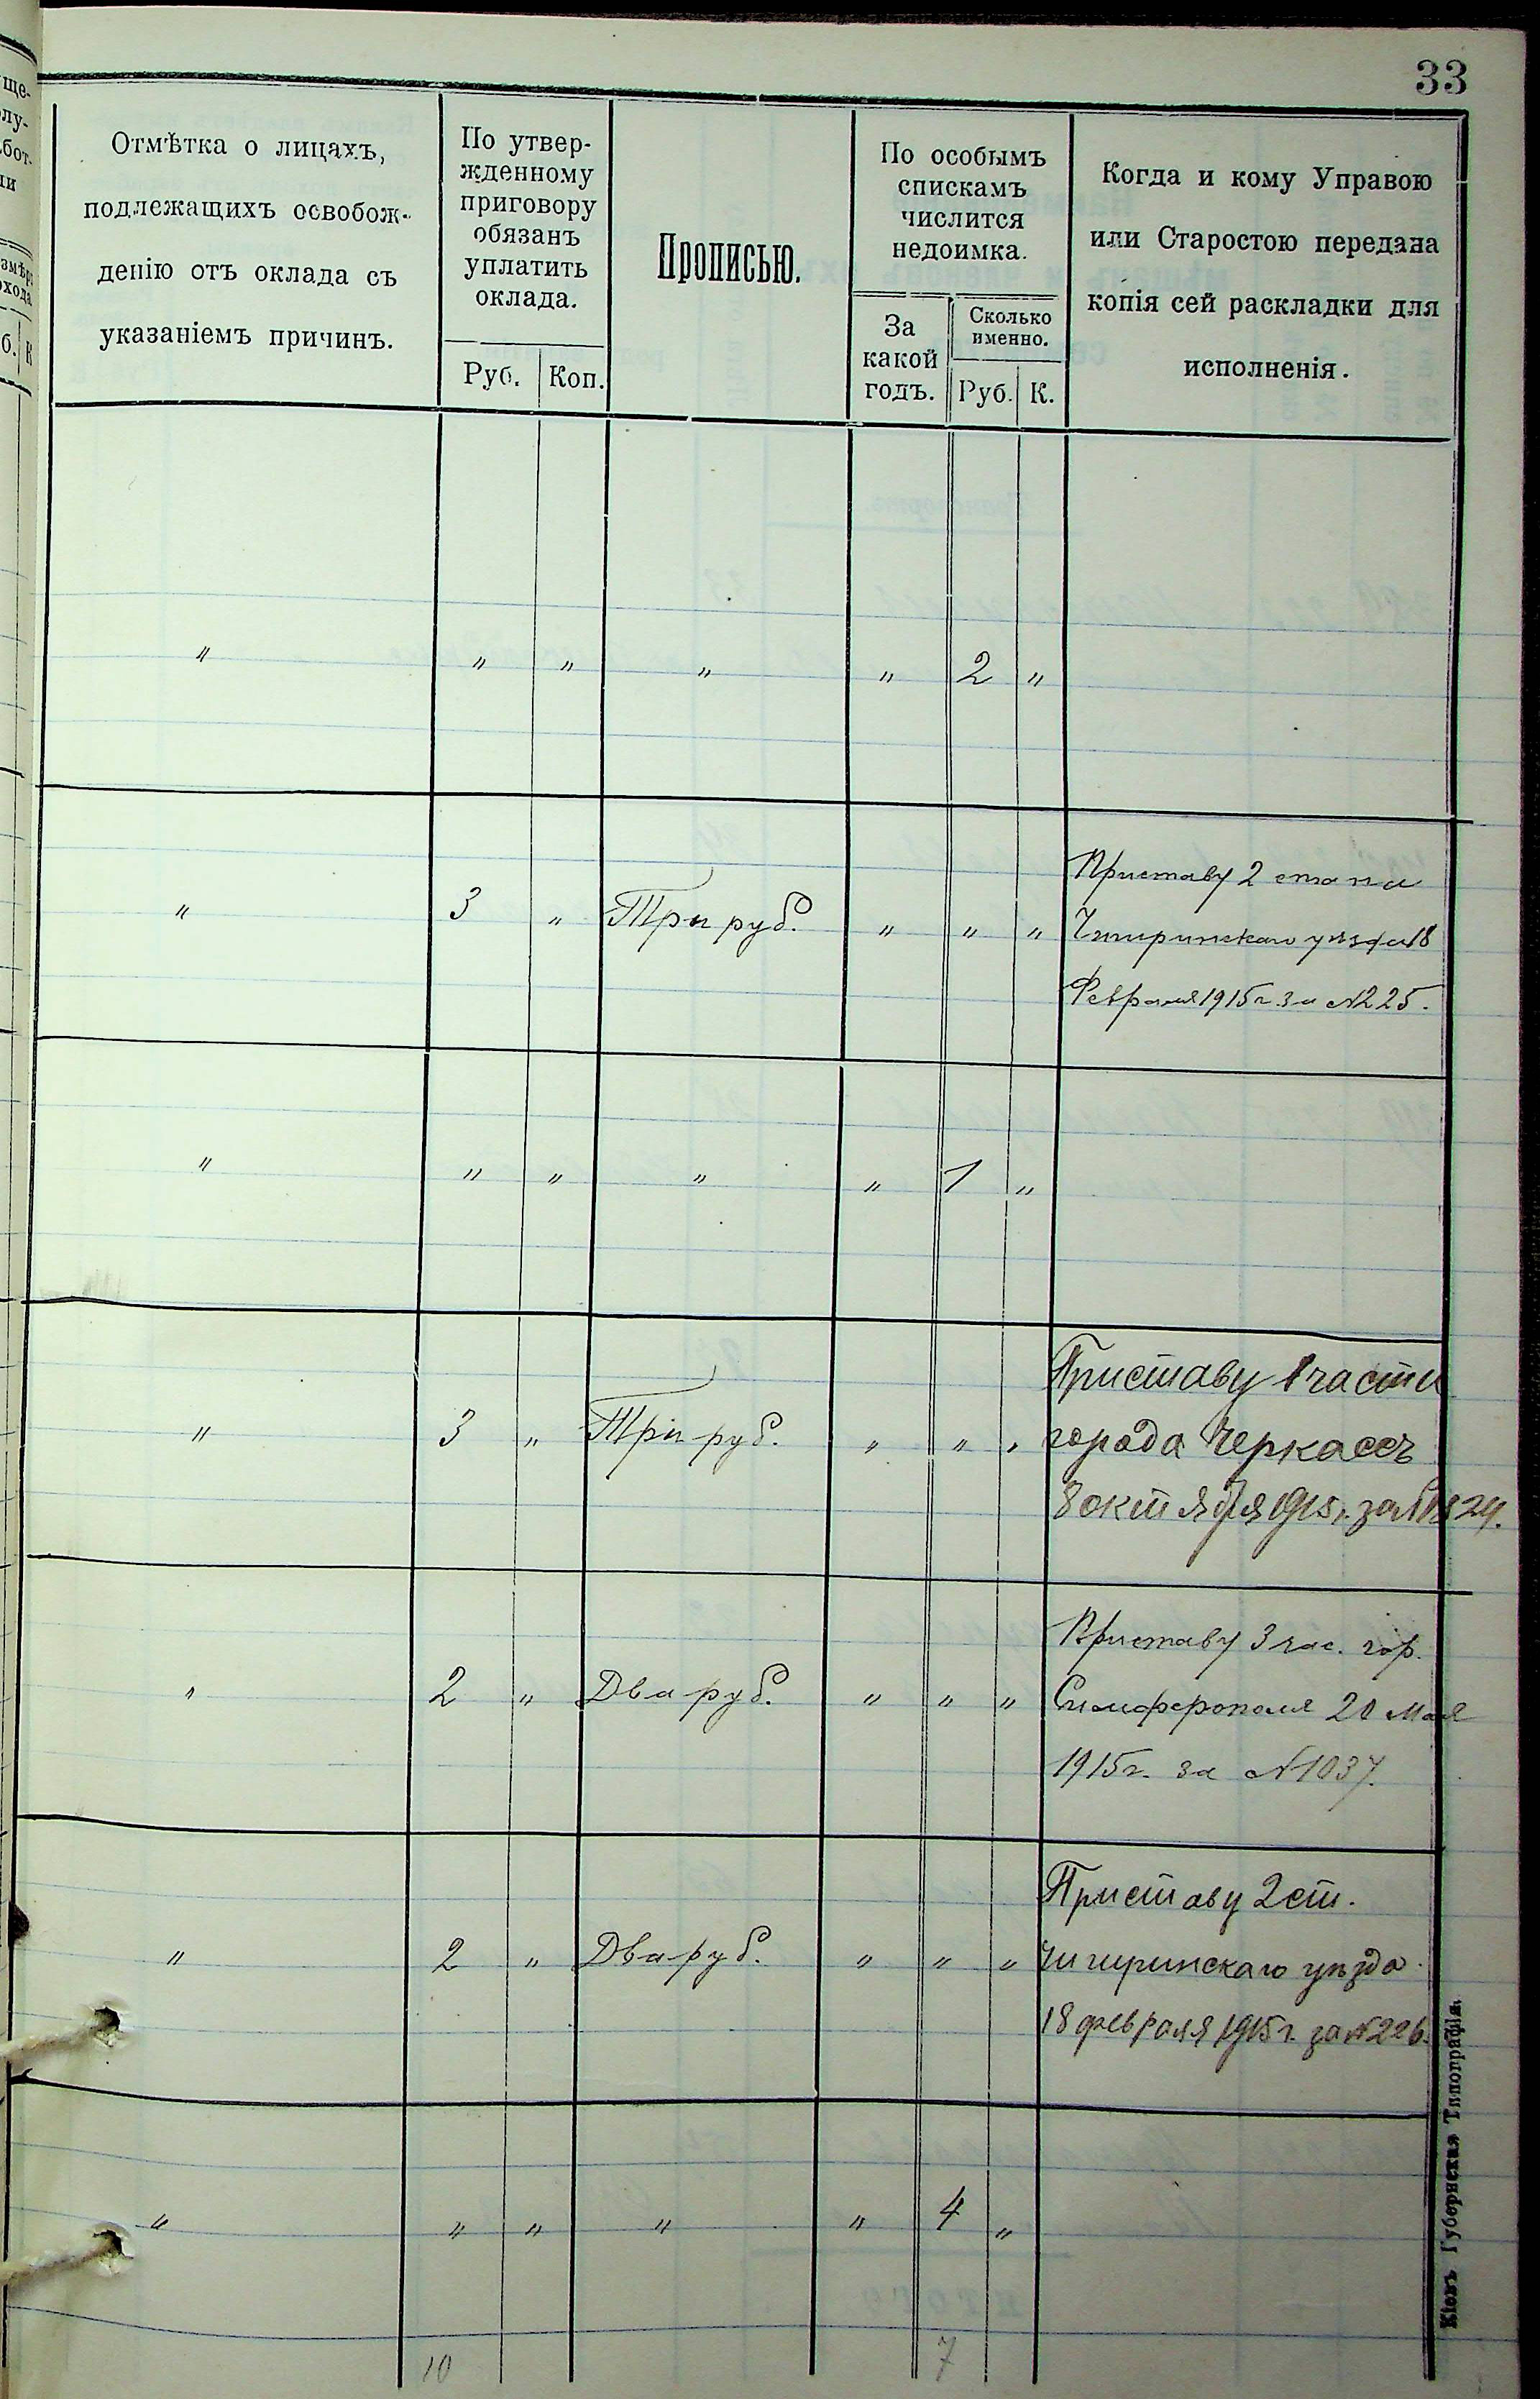 33
Отмѣтка о лицахъ,
подлежащихъ освобож-
денію отъ оклада съ
указаніемъ причинъ.
По утвер-
жденному
приговору
обязанъ
уплатить
оклада.
Руб.
Коп.
Прописью.
По особымъ
спискамъ
числится
недоимка.
За
какой
годъ.
Сколько
именно.
Руб.
К.
Когда и кому Управою
или Старостою передана
копія сей раскладки для
исполненія.
" " " " " 2 "
" 3 " Три руб. " " "
Приставу 2 стана
Чигиринскаго уѣзда 18
Февраля 1915 г. за № 225.
" " " " " 1 "
" 3 " Три руб. " " "
Приставу 1 части
города Черкассъ
8 октября 1915 г. за № 1824.
" 2 " Два руб. " " "
Приставу 3 час. гор.
Симферополя 20 Мая
1915 г. за № 1037.
" 2 " Два руб. " " "
Приставу 2 ст.
Чигиринскаго уѣзда
18 февраля 1915 г. за № 226.
" " " " " 4 "
10 7
Кіевъ Губернская Типографія.